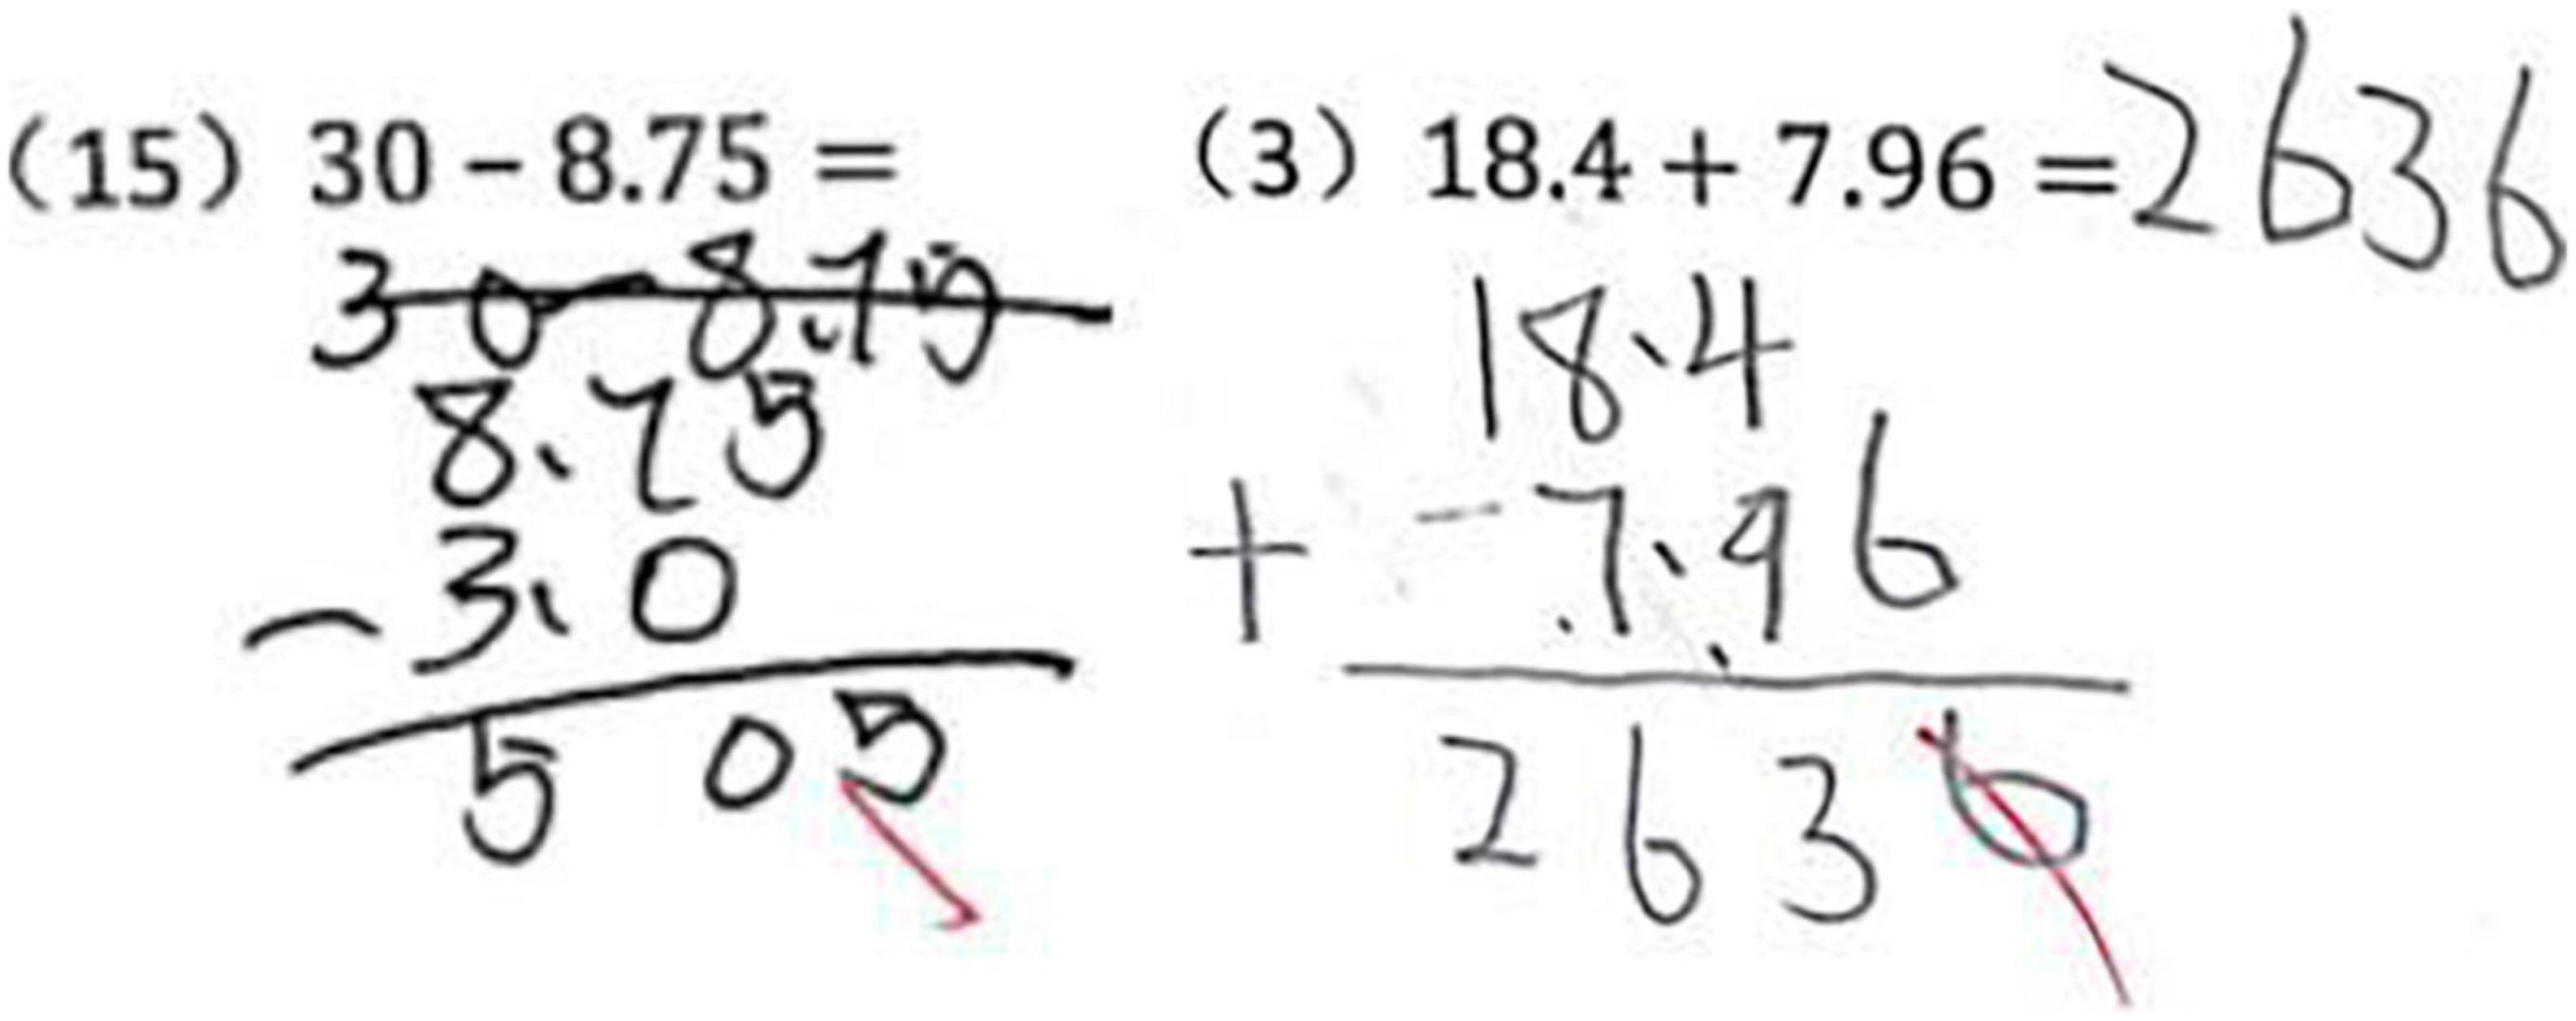 (15) 30 − 8.75 =
30 − 8.75
8.75
− 3.0
5 0 5
(3) 18.4 + 7.96 = 2636
18.4
+ − 7.96
2 6 3 6